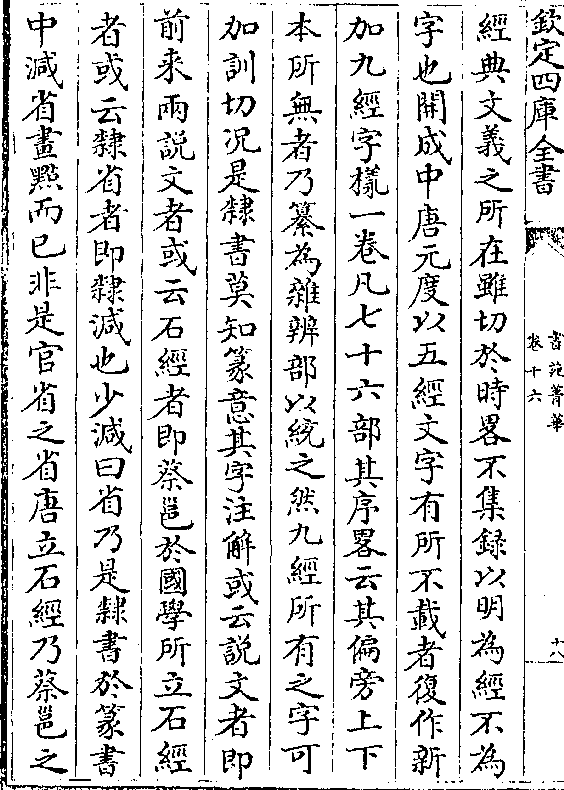 欽定四庫全書
書苑菁華
卷十六
十八
經典文義之所在雖切於時畧不集録以明為經不為
字也開成中唐元度以五經文字有所不載者復作新
加九經字樣一卷凡七十六部其序畧云其偏旁上下
本所無者乃纂為雜辨部以統之然九經所有之字可
加訓切况是隸書莫知篆意其字注解或云說文者即
前来兩說文者或云石經者即蔡邕於國學所立石經
者或云隸省者即隸減也少減曰省乃是隸書於篆書
中減省畫㸃而已非是官省之省唐立石經乃蔡邕之